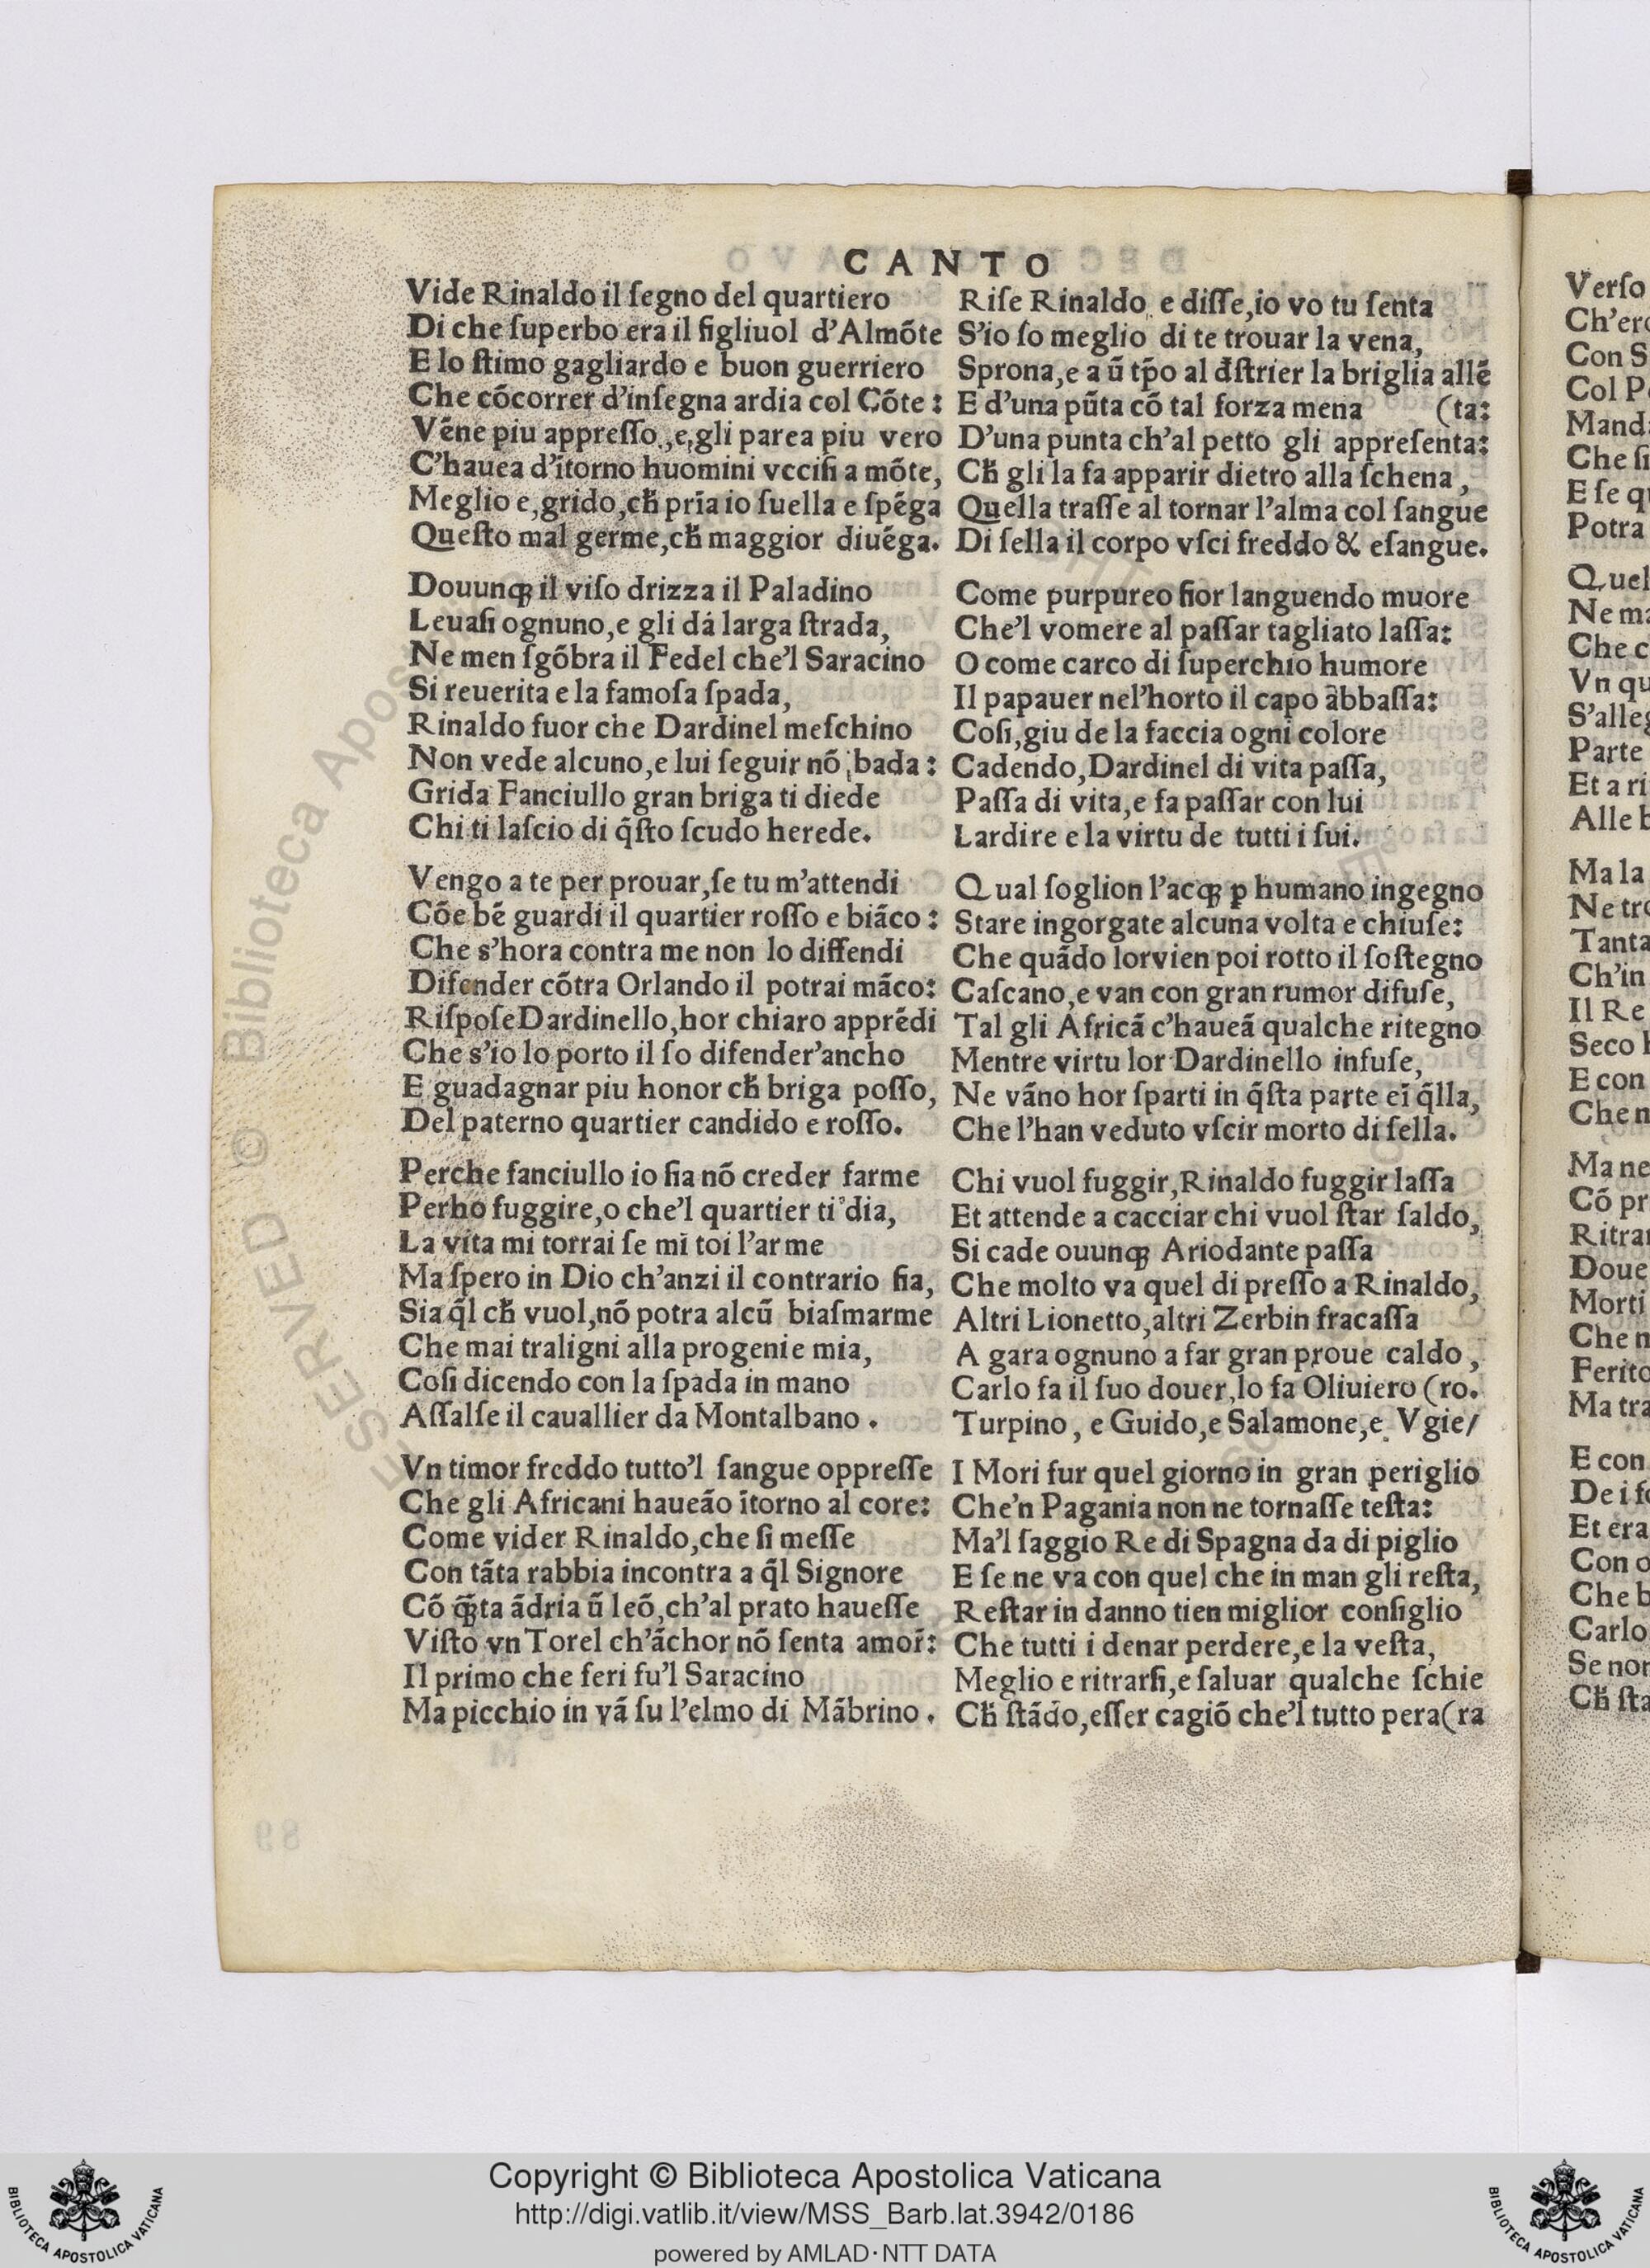 CANTO
Vide Rinaldo il ſegno del quartiero
Di che ſuperbo era il figliuol d'Almõte
E lo ſtimo gagliardo e buon guerriero
Che cõcorrer d'inſegna ardia col Cõte :
Vẽne piu appreſſo, e, gli parea piu vero
C'hauea d'ĩtorno huomini vcciſi a mõte,
Meglio e, grido, cħ pr̃ia io ſuella e ſpẽga
Queſto mal germe, cħ maggior diuẽga.
Douunqꝫ il viſo drizza il Paladino
Leuaſi ognuno, e gli dá larga ſtrada,
Ne men ſgõbra il Fedel che'l Saracino
Si reuerita e la famoſa ſpada,
Rinaldo fuor che Dardinel meſchino
Non vede alcuno, e lui ſeguir nõ bada :
Grida Fanciullo gran briga ti diede
Chi ti laſcio di q̃ſto ſcudo herede.
Vengo a te per prouar, ſe tu m'attendi
Cõe bẽ guardi il quartier roſſo e biãco :
Che s'hora contra me non lo diffendi
Difender cõtra Orlando il potrai mãco:
Riſpoſe Dardinello, hor chiaro apprẽdi
Che s'io lo porto il ſo difender'ancho
E guadagnar piu honor cħ briga poſſo,
Del paterno quartier candido e roſſo.
Perche fanciullo io ſia nõ creder farme
Perho fuggire, o che'l quartier ti dia,
La vita mi torrai ſe mi toi l'arme
Ma ſpero in Dio ch'anzi il contrario ſia,
Sia q̃l cħ vuol, nõ potra alcũ biaſmarme
Che mai traligni alla progenie mia,
Coſi dicendo con la ſpada in mano
Aſſalſe il cauallier da Montalbano .
Vn timor freddo tutto'l ſangue oppreſſe
Che gli Africani haueão ĩtorno al core:
Come vider Rinaldo, che ſi meſſe
Con tãta rabbia incontra a q̃l Signore
Cõ q̃ta ãdria ũ leõ, ch'al prato haueſſe
Viſto vn Torel ch'ãchor nõ ſenta amor̃:
Il primo che feri fu'l Saracino
Ma picchio in vã ſu l'elmo di Mãbrino .
Riſe Rinaldo e diſſe, io vo tu ſenta
S'io ſo meglio di te trouar la vena,
Sprona, e a ũ tp̃o al đſtrier la briglia allẽ
E d'una pũta cõ tal forza mena (ta:
D'una punta ch'al petto gli appreſenta:
Cħ gli la fa apparir dietro alla ſchena ,
Quella traſſe al tornar l'alma col ſangue
Di ſella il corpo vſci freddo & eſangue.
Come purpureo fior languendo muore
Che'l vomere al paſſar tagliato laſſa:
O come carco di ſuperchio humore
Il papauer nel'horto il capo abbaſſa:
Coſi, giu de la faccia ogni colore
Cadendo, Dardinel di vita paſſa,
Paſſa di vita, e fa paſſar con lui
Lardire e la virtu de tutti i ſui.
Qual ſoglion l'acqꝫ ꝑ humano ingegno
Stare ingorgate alcuna volta e chiuſe:
Che quãdo lorvien poi rotto il ſoſtegno
Caſcano, e van con gran rumor difuſe,
Tal gli Africã c'haueã qualche ritegno
Mentre virtu lor Dardinello infuſe,
Ne vãno hor ſparti in q̃ſta parte eĩ q̃lla,
Che l'han veduto vſcir morto di ſella.
Chi vuol fuggir, Rinaldo fuggir laſſa
Et attende a cacciar chi vuol ſtar ſaldo,
Si cade ouunqꝫ Ariodante paſſa
Che molto va quel di preſſo a Rinaldo,
Altri Lionetto, altri Zerbin fracaſſa
A gara ognuno a far gran proue caldo ,
Carlo fa il ſuo douer, lo fa Oliuiero (ro.
Turpino , e Guido, e Salamone, e Vgie/
I Mori fur quel giorno in gran periglio
Che'n Pagania non ne tornaſſe teſta:
Ma'l ſaggio Re di Spagna da di piglio
E ſe ne va con quel che in man gli reſta,
Reſtar in danno tien miglior conſiglio
Che tutti i denar perdere, e la veſta,
Meglio e ritrarſi, e ſaluar qualche ſchie
Cħ ſtãdo, eſſer cagiõ che'l tutto pera (ra
Verſo
Con S
Mand
Che ſi
E ſe q
Potra
Quel
Ne ma
Che c
Vn qu
S'alleg
Parte
Et a ri
Alle b
Ma la
Ne tro
Tanta
Ch'in
Il Re
Seco h
E con
Che n
Ma ne
Cõ pr
Ritrar
Doue
Morti
Che n
Ferito
Ma tra
E con
De i ſo
Et era
Con o
Che b
Carlo
Se non
Cħ ſta
RESERVED © Biblioteca Apost
Copyright © Biblioteca Apostolica Vaticana
http://digi.vatlib.it/view/MSS_Barb.lat.3942/0186
powered by AMLAD·NTT DATA
BIBLIOTECA APOSTOLICA VATICANA
BIBLIOTECA APOSTOLICA VATICANA